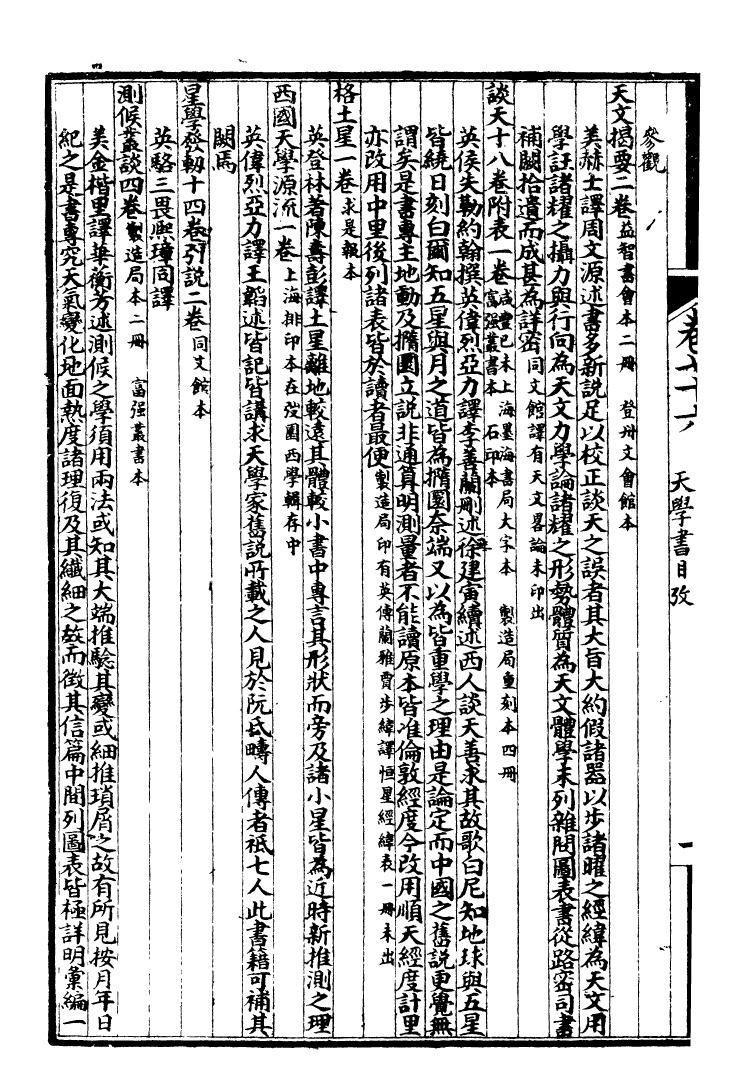 卷七十六
天學書目攷
一
參觀
天文揭要二卷益智書會本二冊 登州文會館本
美赫士譯周文源述書多新說足以校正談天之誤者其大旨大約假諸器以步諸曜之經緯為天文用
學註諸耀之攝力與行向為天文力學論諸耀之形勢體質為天文體學末列雜問圖表書從路密司書
補闕拾遺而成甚為詳密同文館譯有天文畧論未印出
談天十八卷附表一卷咸豐己未上海墨海書局大字本 製造局重刻本四冊 富强叢書本 石印本
英侯失勒約翰撰英偉烈亞力譯李善蘭刪述徐建寅續述西人談天善求其故歌白尼知地球與五星
皆繞日刻白爾知五星與月之道皆為橢圜奈端又以為皆重學之理由是論定而中國之舊說更覺無
謂矣是書專主地動及橢圜立說非通算明測量者不能讀原本皆准倫敦經度今改用順天經度計里
亦改用中里後列諸表皆於讀者最便製造局印有英傅蘭雅賈步緯譯恒星經緯表一冊未出
格土星一卷求是報本
英登林著陳壽彭譯土星離地較遠其體較小書中專言其形狀而旁及諸小星皆為近時新推測之理
西國天學源流一卷上海排印本在弢園西學輯存中
英偉烈亞力譯王韜述皆記皆講求天學家舊說所載之人見於阮氏疇人傳者祗七人此書籍可補其
闕焉
星學發軔十四卷引說二卷同文館本
英駱三畏熙璋同譯
測候叢談四卷製造局本二冊 富强叢書本
美金楷里譯華衡芳述測候之學須用兩法或知其大端推騐其變或細推瑣屑之故有所見按月年日
紀之是書專究天氣變化地面熱度諸理復及其纖細之故而徵其信篇中間列圖表皆極詳明彙編一